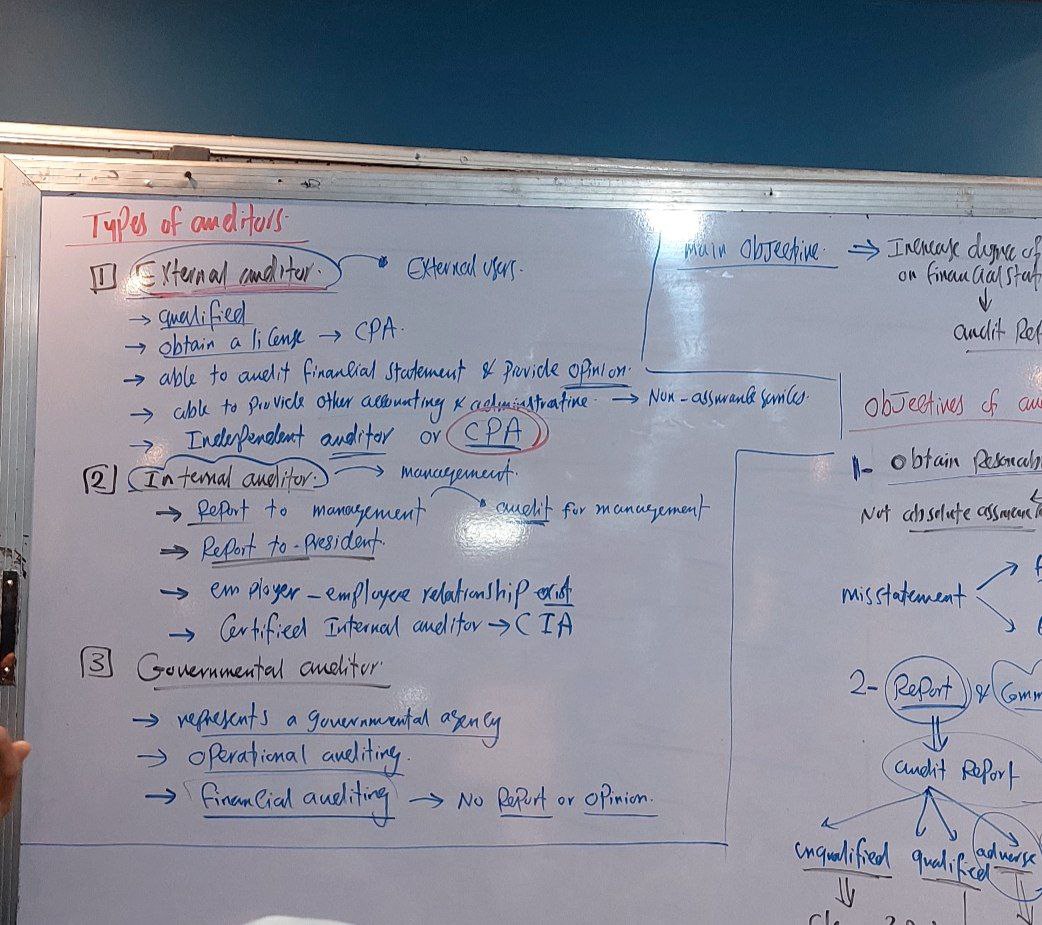 Types of auditors.
1 External auditor. → External users.
→ qualified
→ obtain a license → CPA.
→ able to audit financial statement & Provide opinion.
→ able to provide other accounting & administrative. → Non-assurance services.
→ Independent auditor or CPA
2 Internal auditor. → management.
→ Report to management → audit for management
→ Report to-President.
→ employer-employee relationship exist
→ Certified Internal auditor → CIA
3 Governmental auditor.
→ represents a governmental agency
→ operational auditing.
→ financial auditing → No Report or opinion.
main objective. ⇒ Increase degree of
on financial stat
↓
audit Rep
Objectives of au
1- obtain Resonab
Not absolute assurance
misstatement
2- Report & Comm
audit Report
unqualified qualified adverse